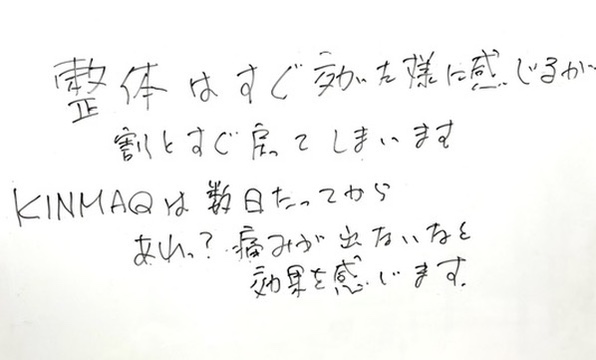 整体はすぐ効いた様に感じるが
割とすぐ戻ってしまいます
KINMAQは数日たってから
あれっ?痛みが出ないなと
効果を感じます.